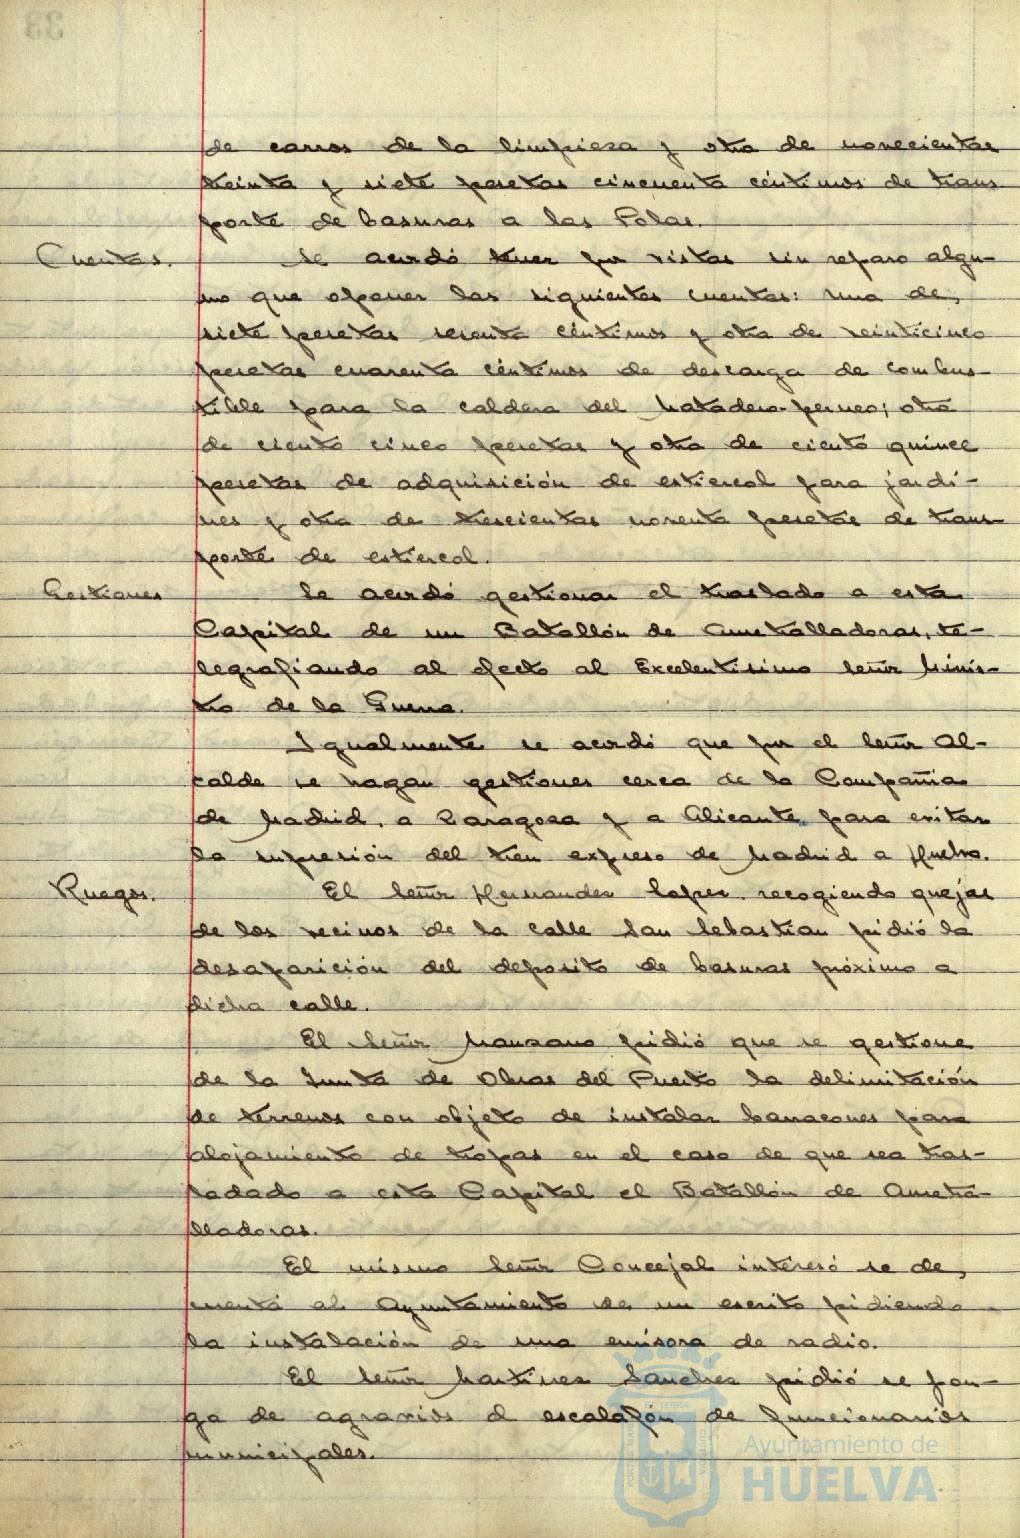 de carros de la limpieza y otra de novecientas
treinta y siete pesetas cincuenta céntimos de trans
porte de basuras a las Polas.
Cuentas. Se acordó tener por vistas sin reparo algu-
no que oponer las siguientes cuentas: una de
siete pesetas sesenta céntimos y otra de veinticinco
pesetas cuarenta céntimos de descarga de combus-
tible para la caldera del Matadero-perneo; otra
de ciento cinco pesetas y otra de ciento quince
pesetas de adquisición de estiercol para jardi-
nes y otra de trescientas noventa pesetas de trans-
porte de estiercol.
Gestiones Se acordó gestionar el traslado a esta
Capital de un Batallón de Ametralladoras, te-
legrafiando al efecto al Excelentísimo Señor Minis-
tro de la Guerra.
Igualmente se acordó que por el Señor Al-
calde se hagan gestiones cerca de la Compañía
de Madrid, a Zaragoza y a Alicante, para evitar
la supresión del tren expreso de Madrid a Huelva.
Ruegos. El Señor Hernandez Lopez, recogiendo quejas
de los vecinos de la calle San Sebastian pidió la
desaparición del deposito de basuras próximo a
dicha calle.
El Señor Manzano pidió que se gestione
de la Junta de Obras del Puerto la delimitación
de terrenos con objeto de instalar barracones para
alojamiento de tropas en el caso de que sea tras-
ladado a esta Capital el Batallón de Ametra-
lladoras.
El mismo Señor Concejal interesó se de
cuenta al Ayuntamiento de un escrito pidiendo
la instalación de una emisora de radio.
El Señor Martinez Sanchez pidió se pon-
ga de agravios el escalafón de funcionarios
municipales.
Ayuntamiento de
HUELVA